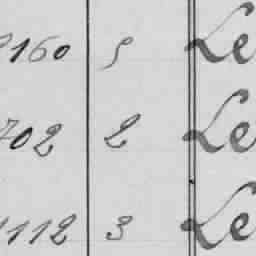 160 5 Le
702 2 Le
1112 3 Le